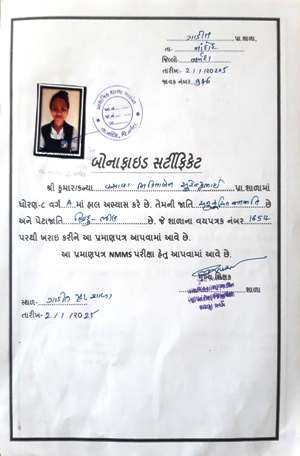 ગાડીત પ્રા.શાળા,
તા- નાંદોદ
જિલ્લો નર્મદા
તારીખ- 2/1/2025
જાવક નંબર
બોનાફાઇડ સર્ટીફિકેટ
શ્રી કુમાર/કન્યા વસાવા સુરેન્દ્રભાઇ પ્રા.શાળામાં
ધોરણ-૮ વર્ગ A માં હાલ અભ્યાસ કરે છે. તેમની જાતિ અનુસૂચિત જનજાતિ છે
અને પેટાજાતિ હિન્દુ-ભીલ છે. જે શાળાના વયપત્રક નંબર 1654
પરથી ખરાઇ કરીને આ પ્રમાણપત્ર આપવામાં આવે છે.
આ પ્રમાણપત્ર NMMS પરીક્ષા હેતુ આપવામાં આવે છે.
મુખ્ય શિક્ષક
સ્થળ- ગાડીત શાળા
શાળા
તારીખ- 2/1/2025